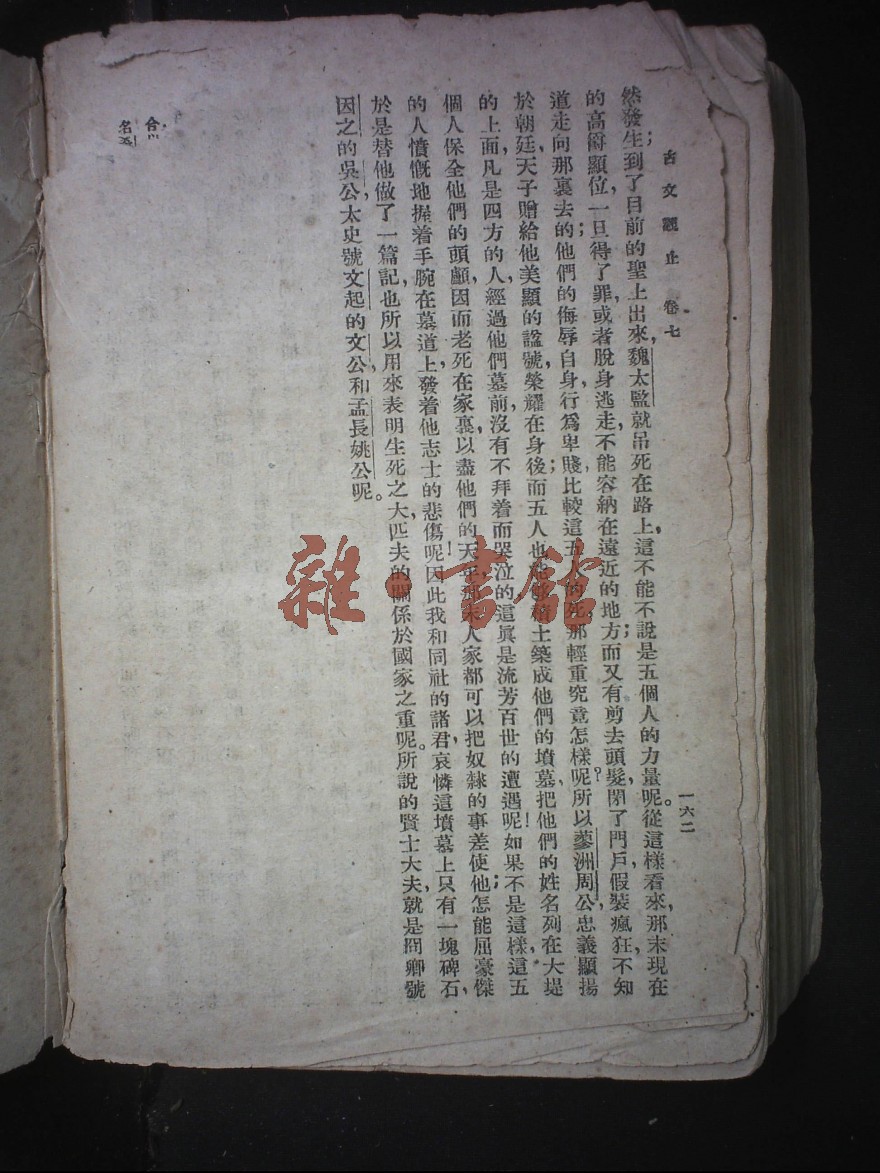 古文觀止 卷七 一六二
然發生；到了目前的聖上出來，魏太監就吊死在路上，這不能不說是五個人的力量呢。從這樣看來，那末現在
的高爵顯位，一旦得了罪，或者脫身逃走，不能容納在遠近的地方；而又有剪去頭髮，閉了門戶，假裝瘋狂，不知
道走向那裏去的；他們的侮辱自身，行爲卑賤，比較這五人的死，那輕重究竟怎樣呢？所以蓼洲周公，忠義顯揚
於朝廷，天子贈給他美顯的諡號，榮耀在身後；而五人也 土築成他們的墳墓，把他們的姓名列在大堤
的上面，凡是四方的人，經過他們墓前，沒有不拜着而哭泣的，這眞是流芳百世的遭遇呢！如果不是這樣，這五
個人保全他們的頭顱，因而老死在家裏，以盡他們的天 人家都可以把奴隸的事差使他；怎能屈豪傑
的人，憤慨地握着手腕在墓道上，發着他志士的悲傷呢！因此我和同社的諸君，哀憐這墳墓上只有一塊碑石，
於是替他做了一篇記，也所以用來表明生死之大，匹夫的關係於國家之重呢。所說的賢士大夫，就是冏卿號
因之的吳公，太史號文起的文公，和孟長姚公呢。
雜·書館